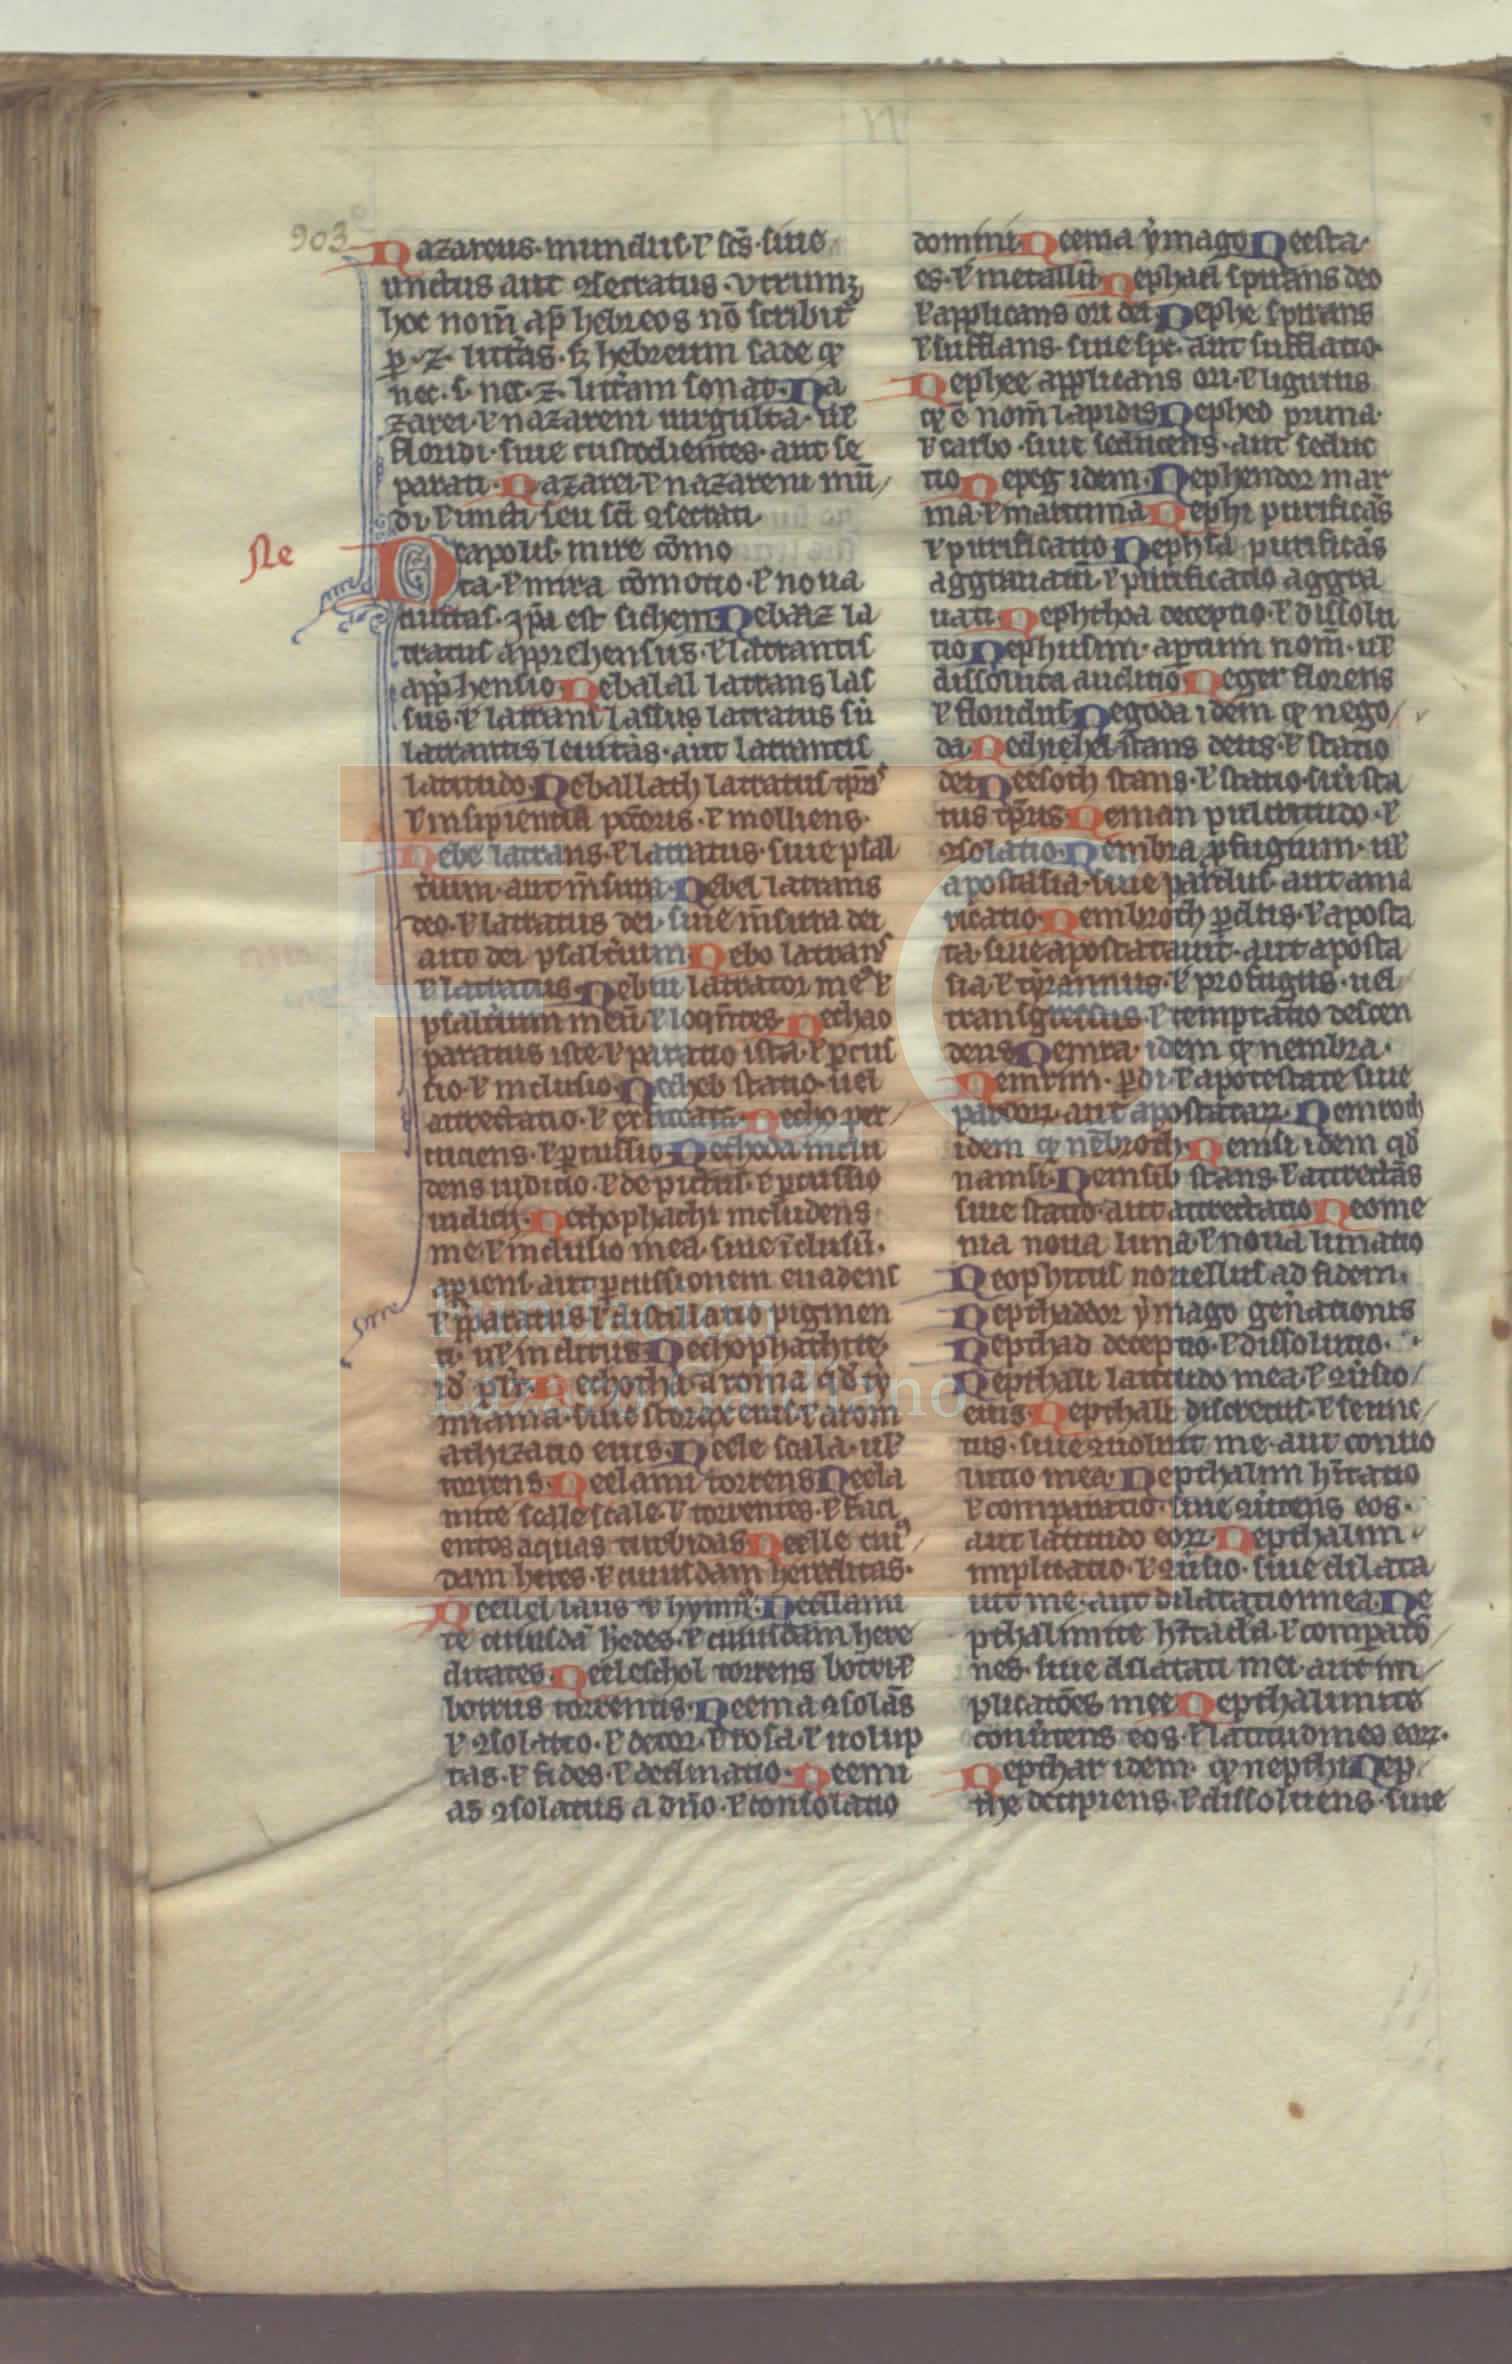 n
903
Nazareus· mundus· ł sc̄s· siue
unctus aut ꝯsecratus· vtrumqꝫ
hoc nom̄ ap̄ hebreos nō scribit᷑
ꝑ ·z· litt̄as· sꝫ hebreum sade qꝫ
nec ·s· nec ·z· litt̄am sonat· Na
zarei· ł nazareni uirgulta· uł
floridi· siue custodientes· aut se
parati· Nazarei· ł nazareni mū
di· ł uncti seu sc̄i ꝯsecrati·
Ne
NEapolis· mire cōmo
ta· ł mira cōmotio· ł noua
ciuitas· ipa est sichem Nebaaz la
tratus apprehensus· ł latrantis
app̄hensio· Nebalal latrans las
sus· ł latrani lassus latratus siū
latrantis leuitas· aut latrantis
latitudo· Neballath latratus tp̄is
ł insipientia pect̄oris· ł molliens·
Nebe latrans· ł latratus· siue psal
t̄ium· aut m̄sura· Nebel latrans
deo· ł latratus dei· siue m̄sura dei
aut dei psalt̄ium· Nebo latrans
ł latratus· Nebiu latrator meꝰ ł
psalt̄ium meū· ł loqn̄tes· Nechao
paratus iste· ł paratio ista· ł ꝑcus
sio· ł inclusio· Necheb statio· uel
attrectatio· ł Necho per
cutiens· ł ꝑcussio· Nechoda inclu
dens iudicio· ł de pictus· ł ꝑcussio
iudicij· Nechophachi includens
me· ł inclusio mea· siue īclusū·
apiens· aut ꝑcussionem euadens
ł p̄paratus· ł distillatio pigmen
ti· uł inditus· Nechophachite·
id̄ plr̄· Nechotha aroma qd̄ ty
miama· siue storax eius· ł arom
athizatio eius· Necle scala· uł
torrens· Neelami torrens Neela
mite scalle scale· ł torrentes· ł faci
entes aquas turbidas Neelle cuiꝰ
dam heres· ł cuiusdam hereditas·
Neellel laus ł hymnꝰ· Neellami
te cuiusdā h̄edes· ł cuiusdam here
ditates· Neeleschol torrens botri· ł
botrus torrentis· Neema ꝯsolās
ł ꝯsolatio· ł decor· ł rosa· ł uolup
tas· ł fides· ł declinatio· Neemi
as ꝯsolatus a dn̄o· ł consolatio
domini· Neema ẏmago Neesta·
es· ł metallū· Nephael spirans deo
ł applicans ori dei Nephe spirans
ł sufflans· siue spc̄· aut sufflatio·
Nephee applicans ori· ł ligurius
qꝫ ē nom̄ lapidis Nepheo pruna·
ł carbo· siue seducens· aut seduc
tio Nepeg idem· Nephendor mar
ma· ł maritima· Nephi purificās
ł purificatio Nephsa purificās
aggrauatū· ł purificatio aggra
uati· Nephthoa deceptio· ł dissolu
tio Nephusim· aꝑtum nom̄· uł
dissoluta auditiō Neger florens
ł floridus Negoda idem qꝫ nego
da· Nechehel stans deus· ł statio
dei Neesoth stans· ł statio· siue sta
tus tp̄us· Neman pulcritudo· ł
ꝯsolatio· Nembra ꝑfugium· uł
apostasia· siue pardus· aut ama
ricatio· Nembroth ꝑdr̄us· ł aposta
ta· siue apostatauit· aut aposta
sia· ł tẏrannus· ł profugus· uel
transgressus· ł temptatio descen
dens Nemra· idem qꝫ nembra·
Nemrim· ꝑdi· ł apotestate siue
pardoꝝ· aut apostataꝝ· Nemroth
idem qꝫ nēbroth· Nemsi idem qd̄
namsi· Nemsib stans· ł attrectās
siue statio· aut attrectatio· Neome
nia noua luna· ł noua lunatio
Neophitus nouellus ad fidem·
Nepthador ẏmago gen̄ationis
Nepthad deceptio· ł dissolutio·
Nepthali latitudo mea· ł ꝯuersio
eius· Nepthali discretus· ł seiunc
tus· siue ꝯuoluit me· aut conuo
lutio mea· Nepthalim h̄itatio
ł comparatio· siue ꝯu̇tens eos·
aut latitudo eoꝝ· Nepthalim
implicatio· ł ꝯu̇sio· siue dilata
uit me· aut dilatatio mea· Ne
pthalimite h̄itacla· ł comꝑatō
nes· siue dilatati mei· aut im
plicatōes mee Nepthalimite
conu̇tens eos· ł latitudines eoꝝ·
Nepthar idem qꝫ nepthi Nep
the decipiens· ł dissoluens· siue
FLG
Fundación
Lázaro Galdiano